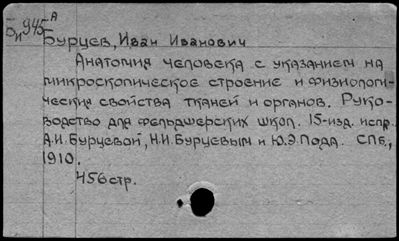 Би 945 А
Бурцев, Иван Иванович
Анатомия человека с указанием на
микроскопическое строение и физиологи-
ческия свойства тканей и органов. Руко-
водство для фельдшерских школ. 15-изд. испр.
А.И. Бурцевой, Н.И. Бурцевым и Ю.Э. Пода. СПБ,
1910.
456 стр.